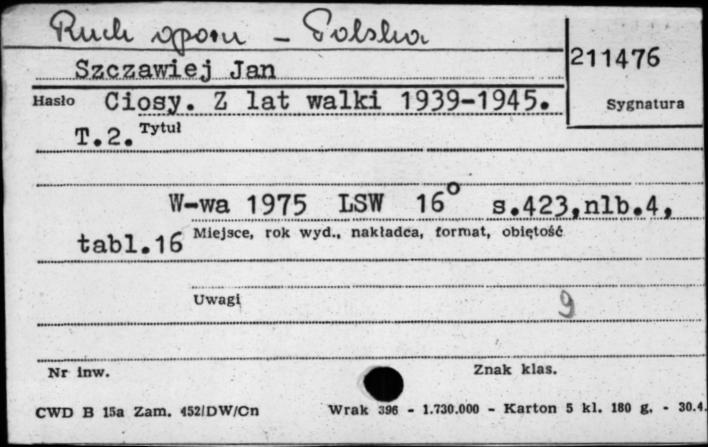 Ruch oporu – Polska
Szczawiej Jan
211476
Hasło Ciosy. Z lat walki 1939-1945.
Sygnatura
T.2. Tytuł
W-wa 1975 LSW 16° s.423,nlb.4,
tabl.16 Miejsce, rok wyd., nakładca, format, obiętość
Uwagi
9
Nr inw. Znak klas.
CWD B 15a Zam. 452/DW/Cn Wrak 396 - 1.730.000 - Karton 5 kl. 180 g. - 30.4.